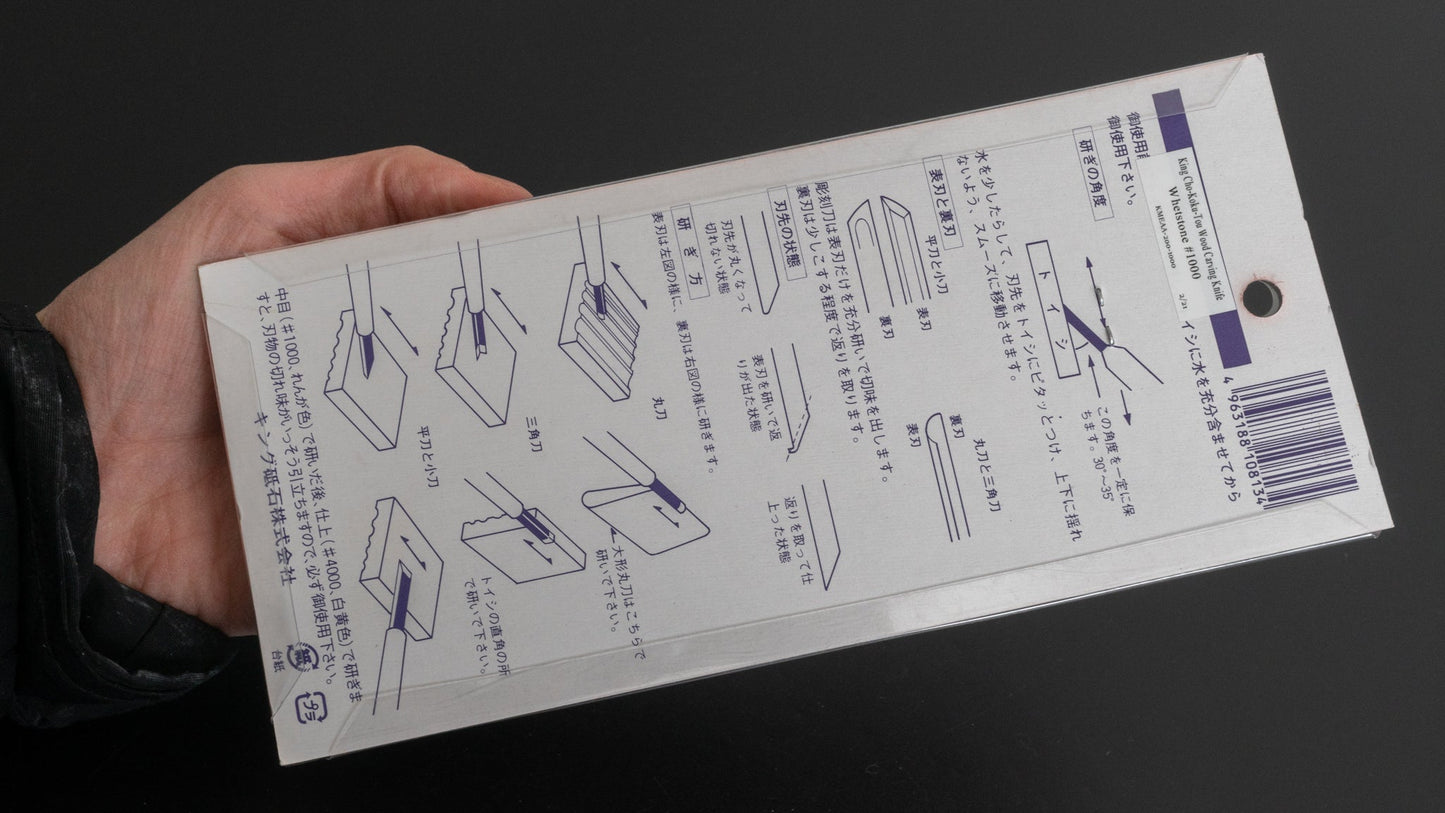 King Cho-Koku-Tou Wood Carving Knife
Whetstone #1000
KMEAA-200-1000
2/21
4 963188 108134
御使用
イシに水を充分含ませてから
御使用下さい。
研ぎの角度
トイシ
この角度を一定に保
ちます。30°〜35°
水を少したらして、刃先をトイシにピタッとつけ、上下に揺れ
ないよう、スムーズに移動させます。
表刃と裏刃
平刀と小刀
表刃
裏刃
丸刀と三角刀
裏刃
表刃
彫刻刀は表刃だけを充分研いで切味を出します。
裏刃は少しこする程度で返りを取ります。
刃先の状態
刃先が丸くなって
切れない状態
表刃を研いで返
りが出た状態
返りを取って仕
上った状態
研ぎ方
表刃は左図の様に、裏刃は右図の様に研ぎます。
丸刀
大形丸刀はこちらで
研いで下さい。
三角刀
トイシの直角の所
で研いで下さい。
平刀と小刀
中目(#1000、れんが色)で研いだ後、仕上(#4000、白黄色)で研ぎま
すと、刃物の切れ味がいっそう引立ちますので、必ず御使用下さい。
キング砥石株式会社
台紙
紙
プラ